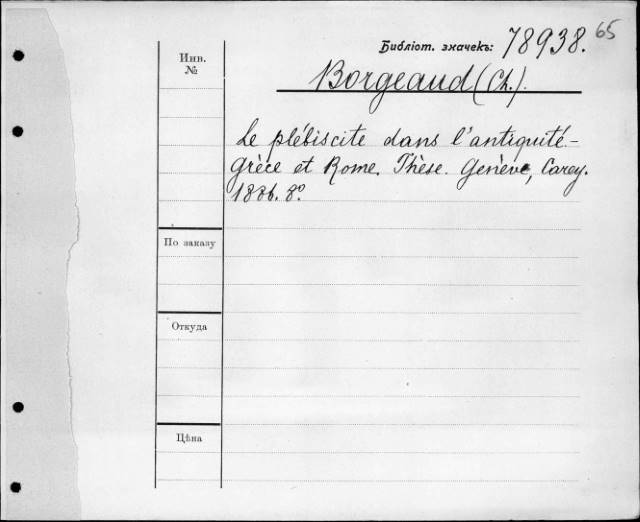 65
Библіот. значекъ: 78938.
Инв.
№
Borgeaud (Ch.).
Le plébiscite dans l'antiquité –
Grèce et Rome. Thèse. Genève, Carey.
1886. 8º.
По заказу
Откуда
Цѣна